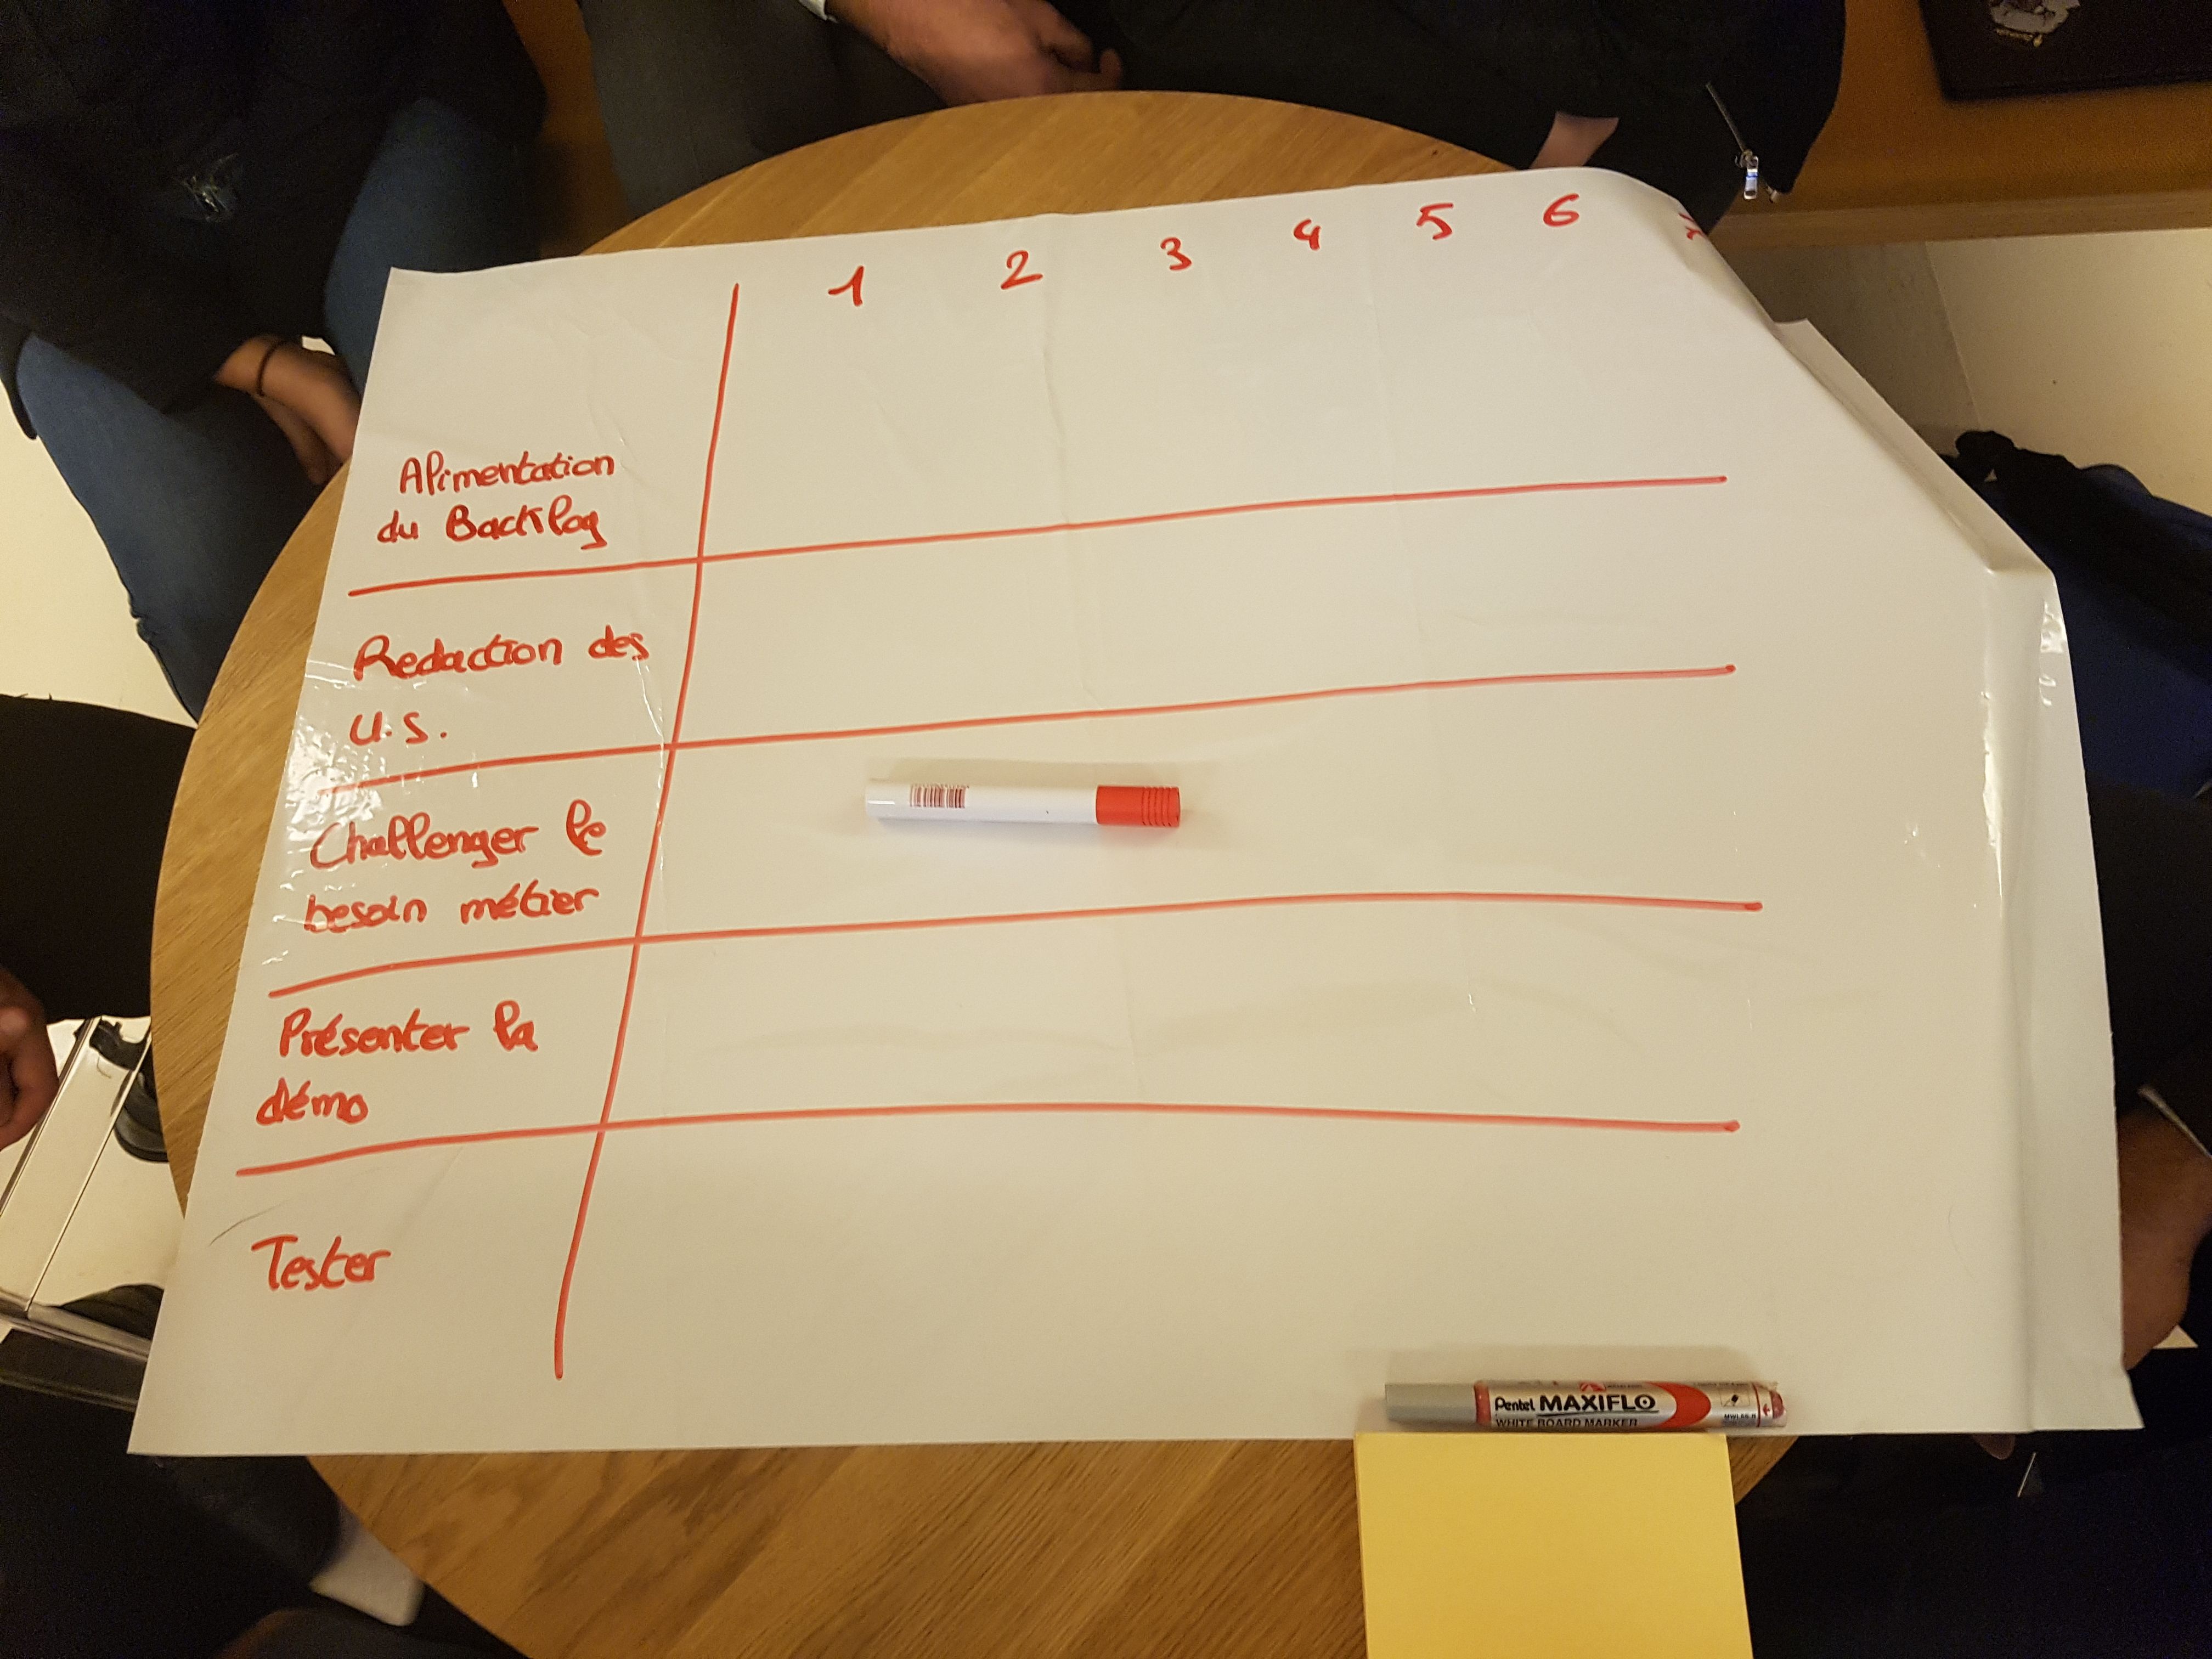 1 2 3 4 5 6
Alimentation
du Backlog
Redaction des
U.S.
Challenger le
besoin métier
Présenter la
démo
Tester
Pentel MAXIFLO
WHITE BOARD MARKER